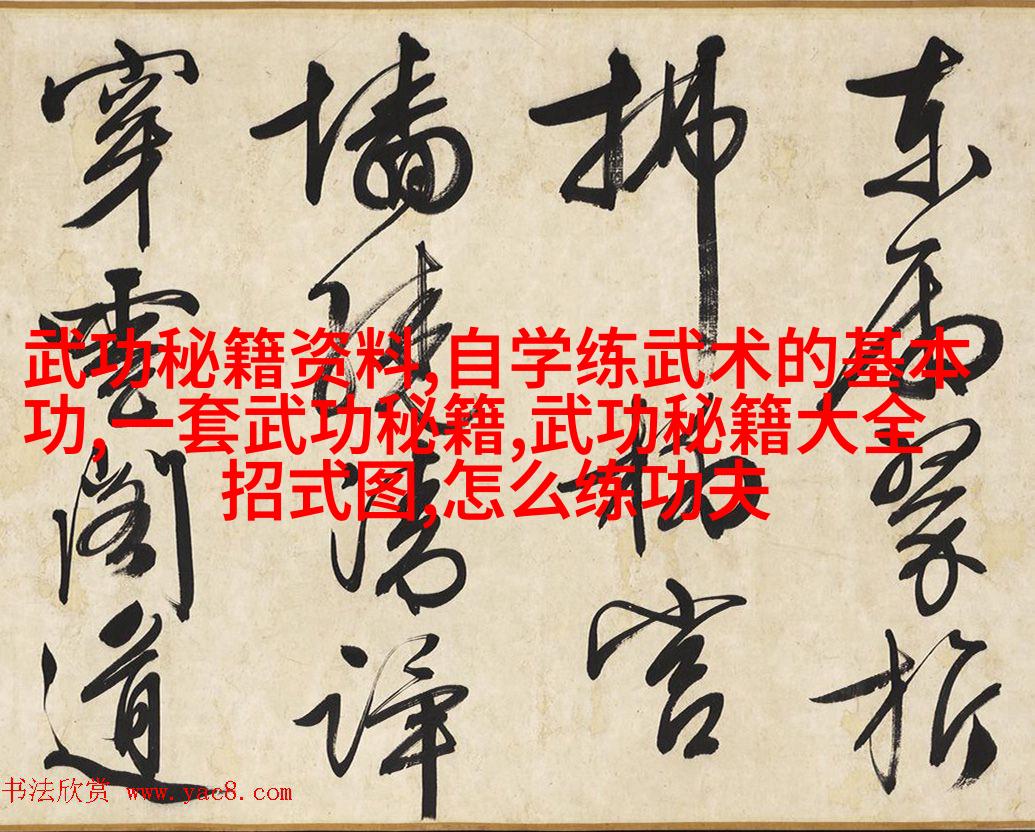 武功秘籍资料,自学练武术的基本
功,一套武功秘籍,武功秘籍大全
招式图,怎么练功夫
東翠
拂宮
墻清
穿雲閣道
书法欣赏 www.yac8.com